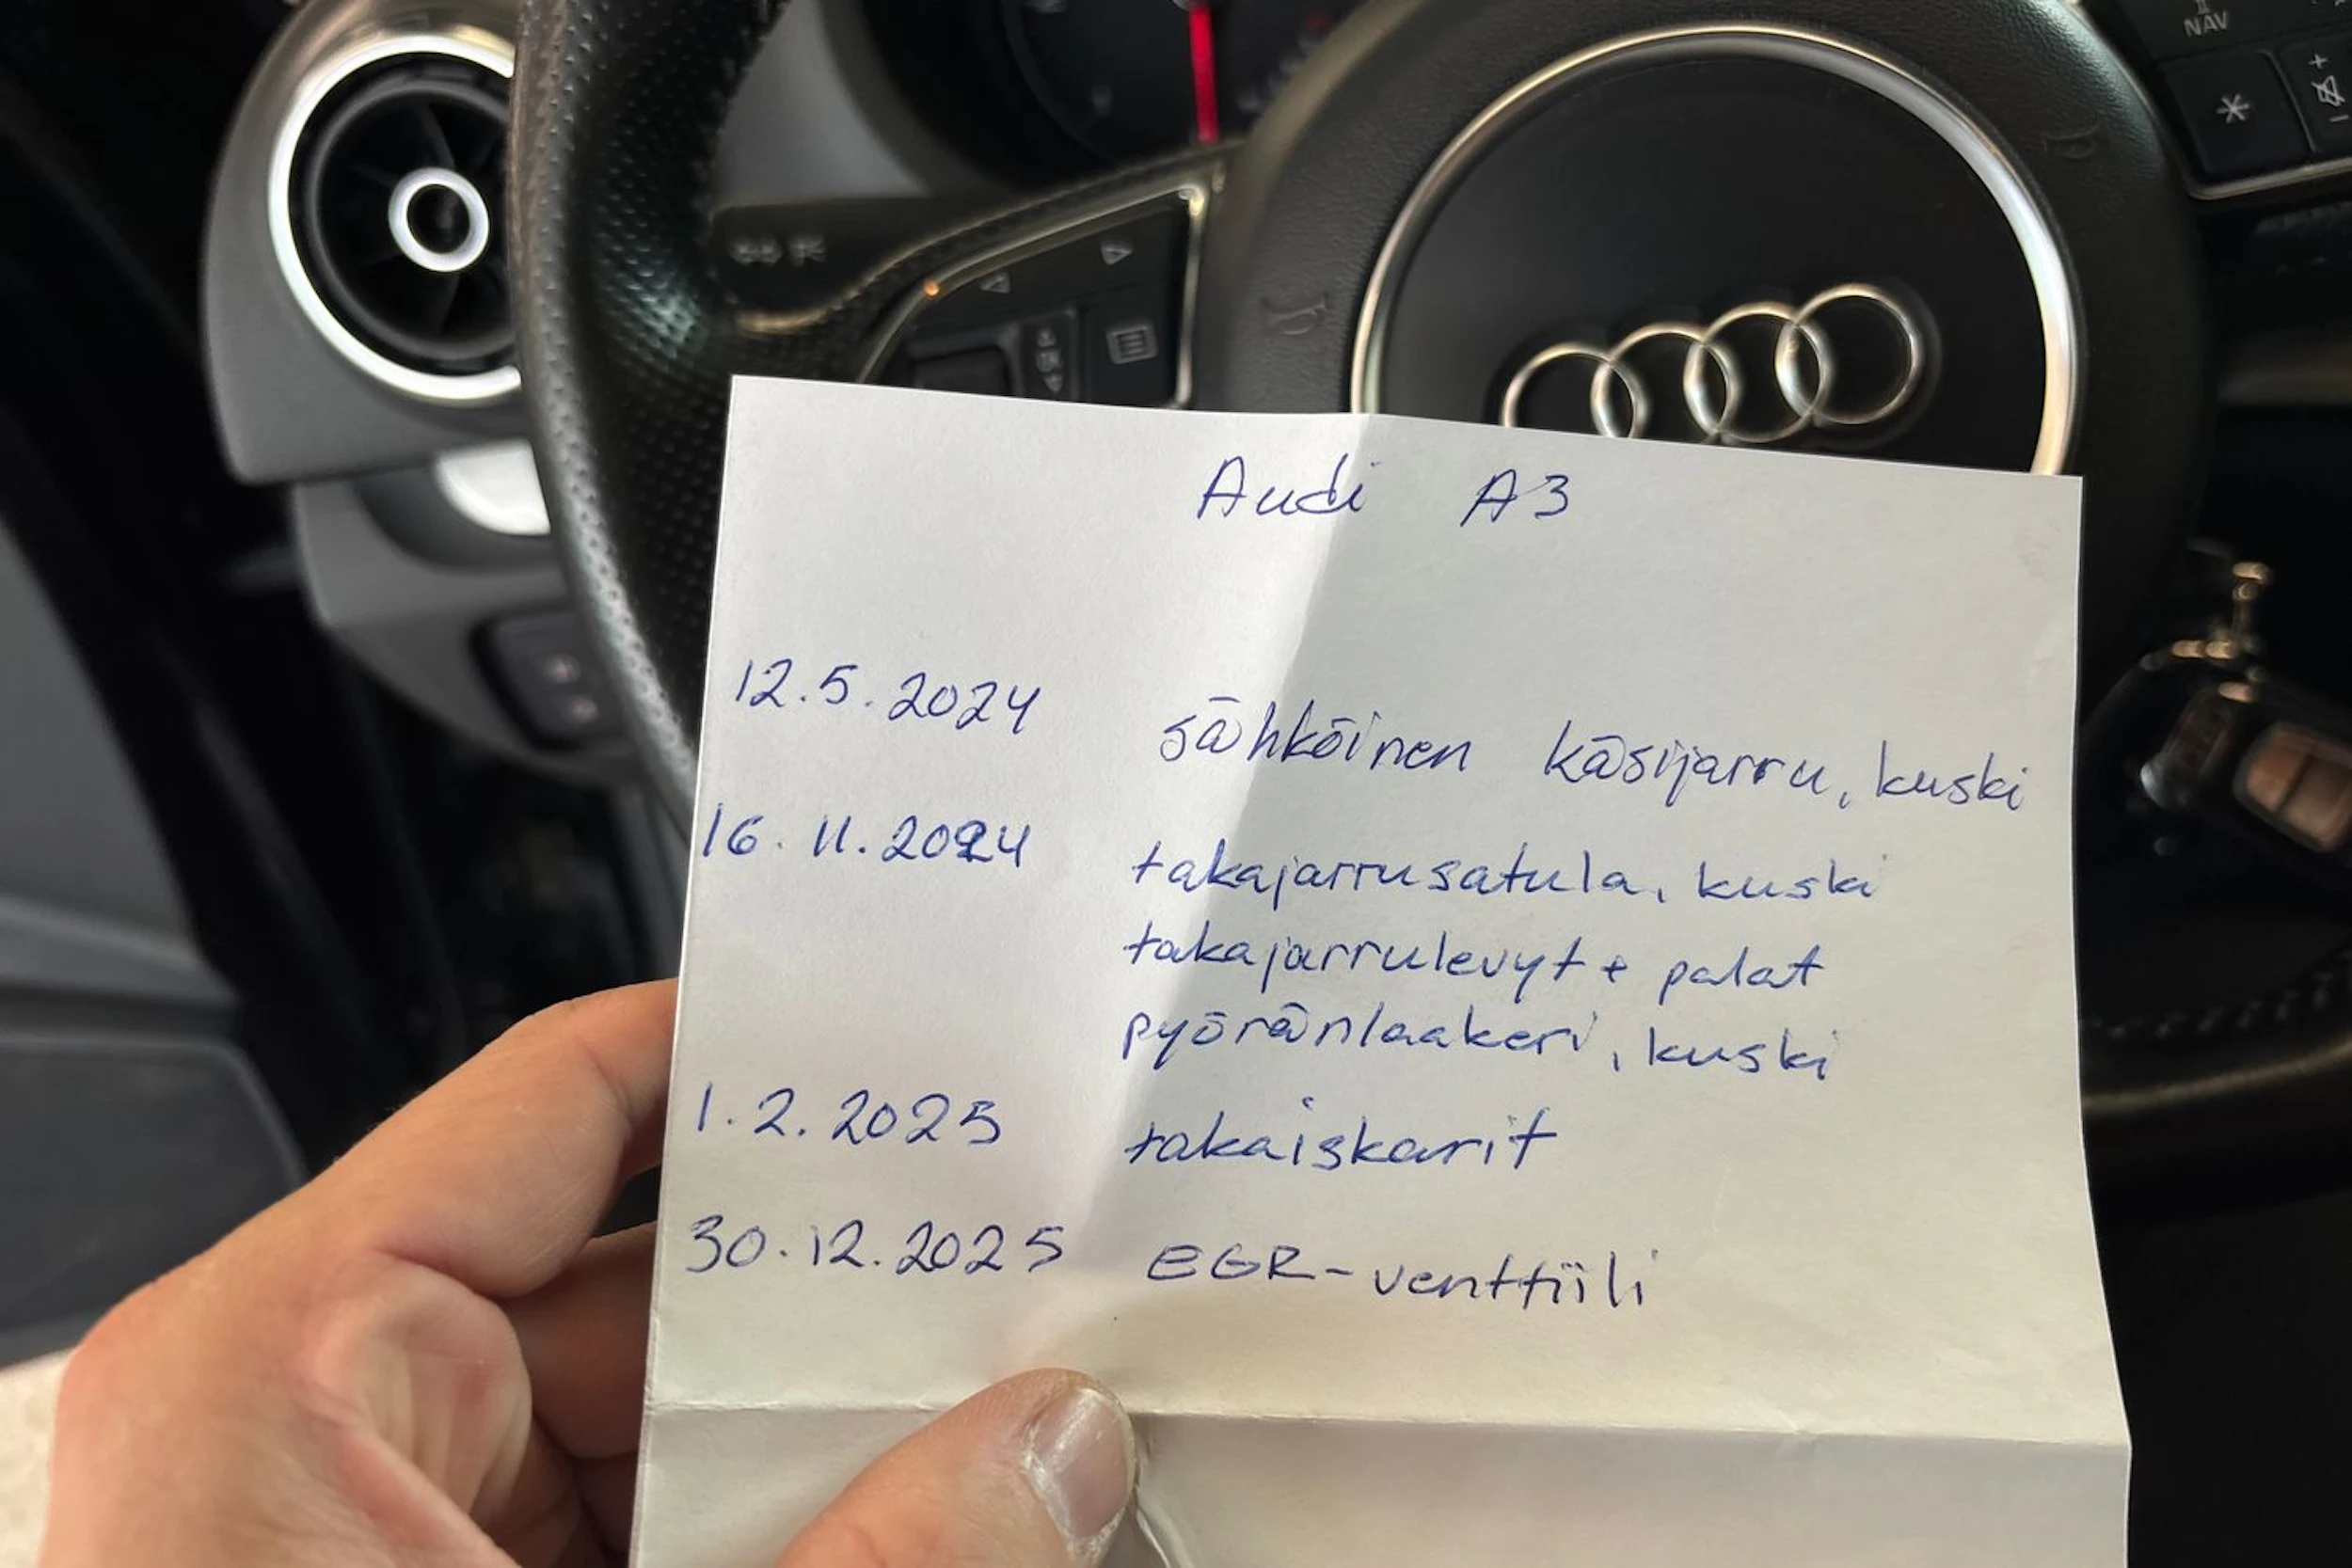 NAV
OK
Audi A3
12.5.2024 sähköinen käsijarru, kuski
16.11.2024 takajarrusatula, kuski
takajarrulevyt + palat
pyöränlaakeri, kuski
1.2.2025 takaiskarit
30.12.2025 EGR-venttiili